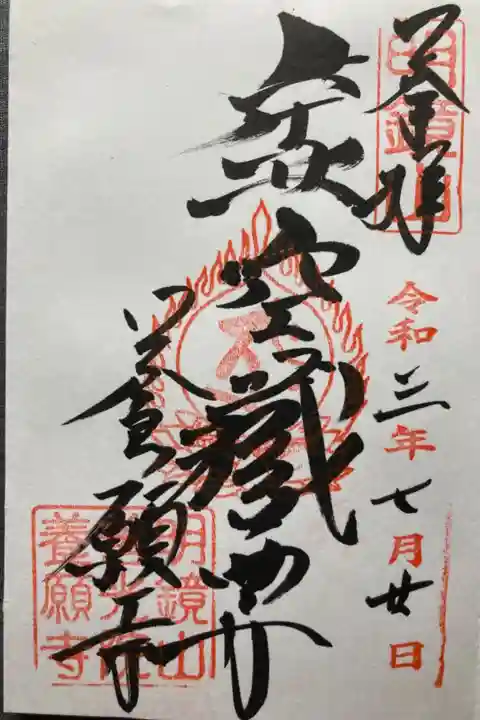 明鏡山
奉拝
令和三年七月廿日
虚空藏尊
養願寺
明鏡山
善光院
養願寺